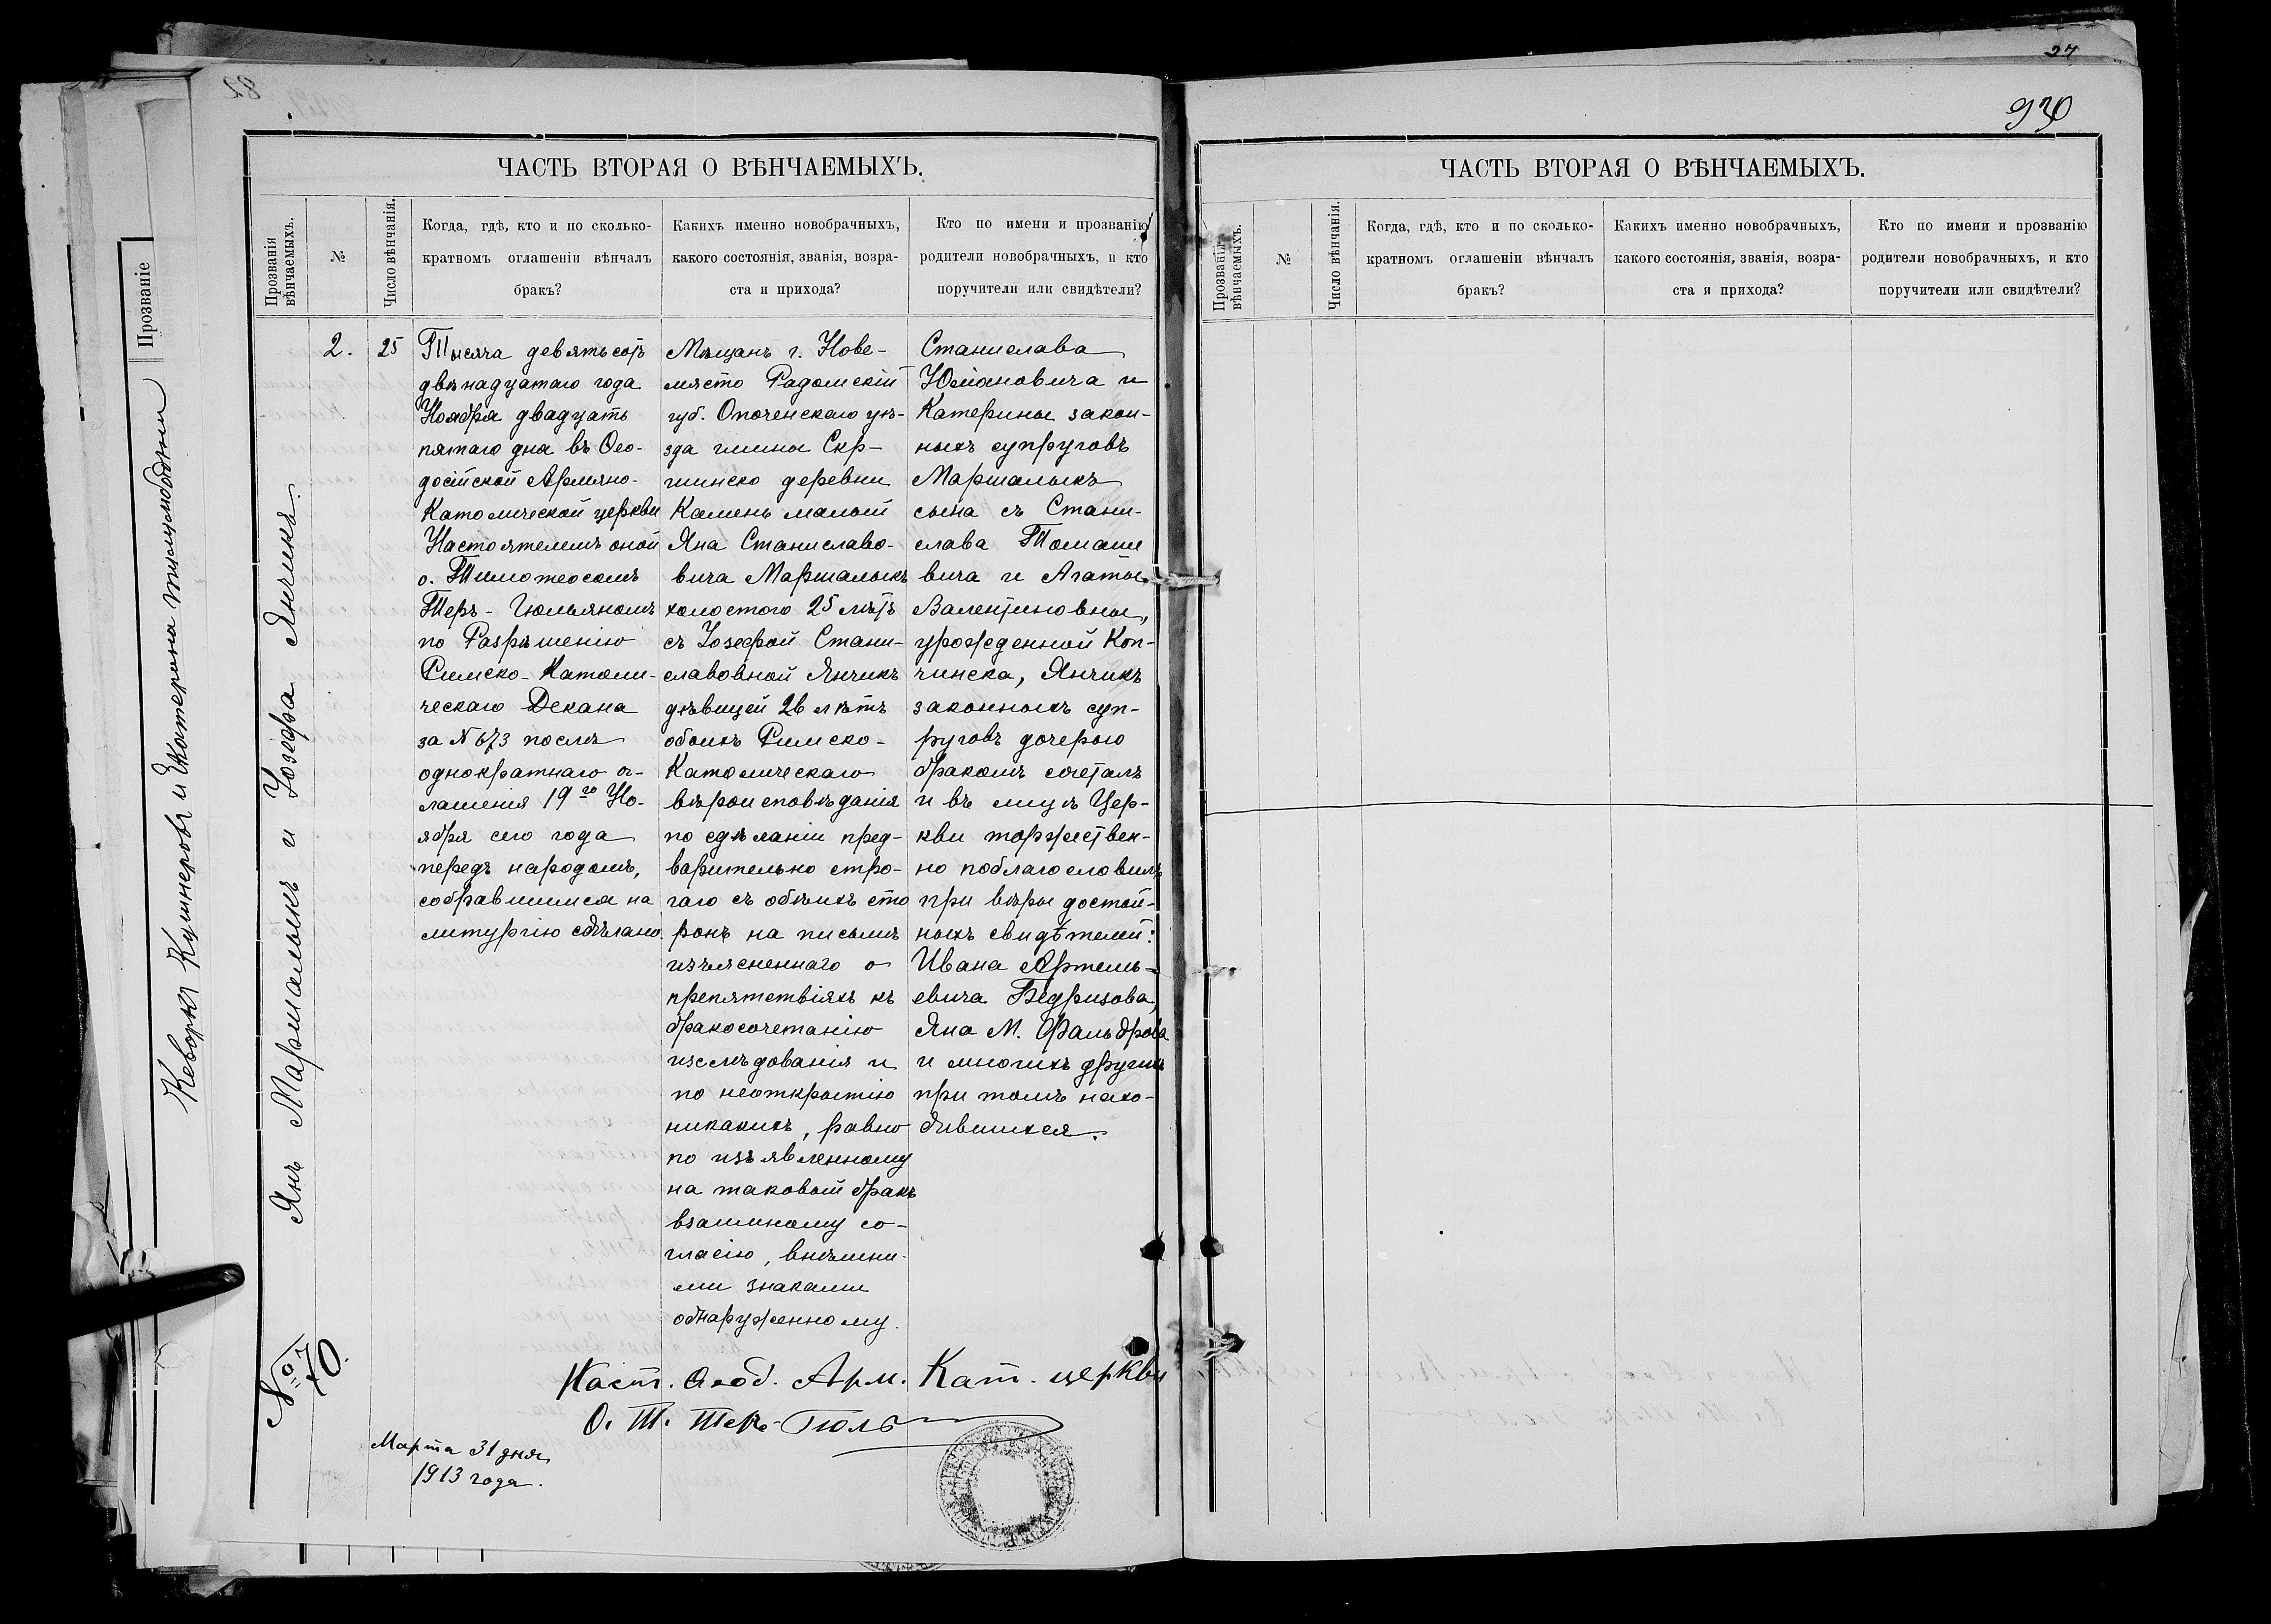 82
27
930
Прозваніе
Кеворкъ Кушнеровъ и Екатерина
ЧАСТЬ ВТОРАЯ О ВѢНЧАЕМЫХЪ.
Прозванія вѣнчаемыхъ.
№
Число вѣнчанія.
Когда, гдѣ, кто и по сколько-
кратномъ оглашеніи вѣнчалъ
бракъ?
Какихъ именно новобрачныхъ,
какого состоянія, званія, возра-
ста и прихода?
Кто по имени и прозванію
родители новобрачныхъ, и кто
поручители или свидѣтели?
Янъ Маршалыкъ и Іозефа Янчикъ.
2.
25
Тысяча девятьсотъ
двѣнадцатаго года
Ноября двадцать
пятаго дня въ Ѳео-
досійской Армяно-
Католической церкви
Настоятелемъ оной
о. Тимотеосомъ
Теръ-Гюльяномъ
по Разрѣшенію
Римско-Католи-
ческаго Декана
за № 673 послѣ
однократнаго ог-
лашенія 19го Но-
ября сего года
передъ народомъ,
собравшимся на
литургію сдѣлано.
Мѣщанъ г. Нове-
място Радомскій
губ. Опоченскаго уѣ-
зда гмины Скр-
шинско деревни
Камень малый
Яна Станиславо-
вича Маршалыкъ
холостого 25 лѣтъ
съ Іозефой Стани-
славовной Янчикъ
дѣвицей 26 лѣтъ
обоихъ Римско-
Католическаго
вѣроисповѣданія
по сдѣланіи пред-
варительно стро-
гаго съ обѣихъ сто
ронъ на письмѣ
изъясненнаго о
препятствіяхъ къ
бракосочетанію
изслѣдованія и
по неоткрытію
никакихъ, равно
по изъявленному
на таковый бракъ
взаимному со-
гласію, внѣшни-
ми знаками
обнаруженному.
Станислава
Юліановича и
Катерины закон-
ныхъ супруговъ
Маршалыкъ
сына съ Стани-
слава Томаше
вича и Агаты
Валентиновны,
урожденной Коп-
чинска, Янчикъ
законныхъ суп-
руговъ дочерью
бракомъ сочеталъ
и въ лицѣ Цер-
кви торжествен-
но поблагословилъ
при вѣры достой-
ныхъ свидѣтелей:
Ивана Артемь-
евича Бедризова,
Яна М. Фальброва
и многихъ другихъ
при томъ нахо-
дившихся.
№ 70.
Наст. Ѳеод. Арм. Кат. церкви
О. Т. Теръ-Гюль
Марта 31 дня
1913 года.
ЧАСТЬ ВТОРАЯ О ВѢНЧАЕМЫХЪ.
Прозванія вѣнчаемыхъ.
№
Число вѣнчанія.
Когда, гдѣ, кто и по сколько-
кратномъ оглашеніи вѣнчалъ
бракъ?
Какихъ именно новобрачныхъ,
какого состоянія, званія, возра-
ста и прихода?
Кто по имени и прозванію
родители новобрачныхъ, и кто
поручители или свидѣтели?